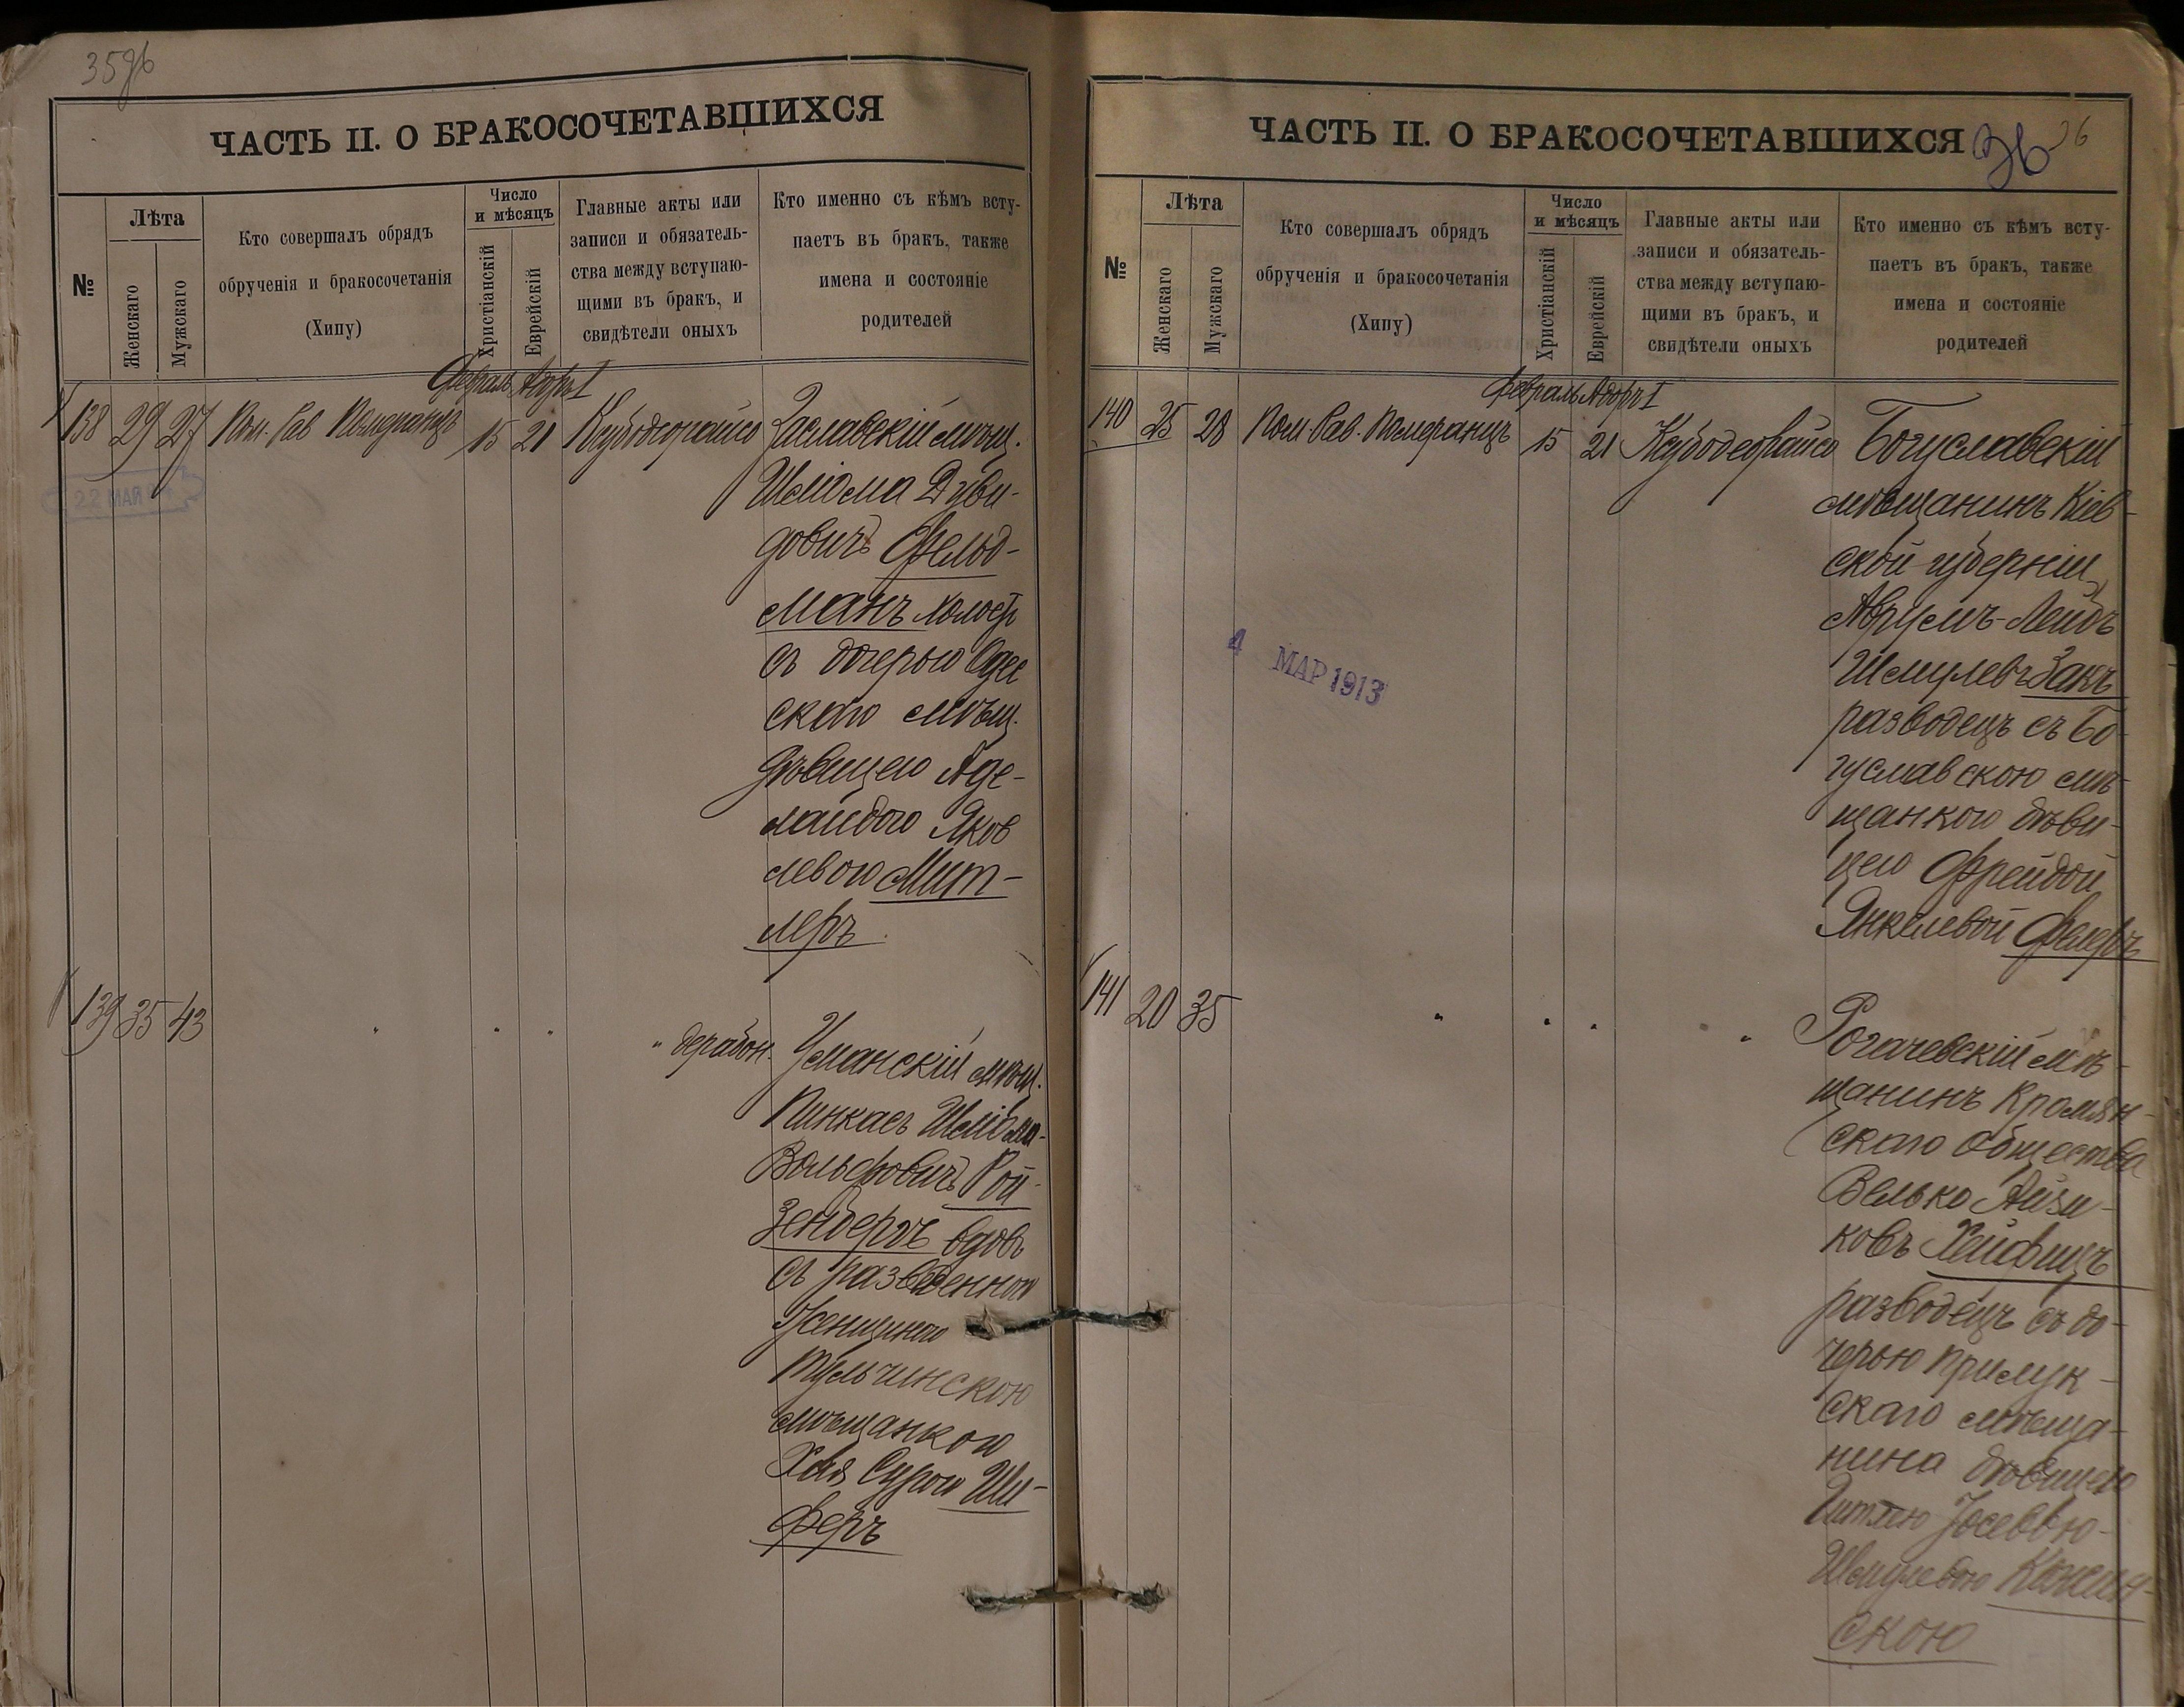 35об
ЧАСТЬ II. О БРАКОСОЧЕТАВШИХСЯ
№
Лѣта
Женскаго
Мужскаго
Кто совершалъ обрядъ
обрученія и бракосочетанія
(Хипу)
Число
и мѣсяцъ
Христіанскій
Еврейскій
Главные акты или
записи и обязатель-
ства между вступаю-
щими въ бракъ, и
свидѣтели оныхъ
Кто именно съ кѣмъ всту-
паетъ въ бракъ, также
имена и состояніе
родителей
Февраль Адоръ I
138 29 27 Пом. Рав Померанцъ 15 21 Ксубодеорайсо Заславскій мѣщ.
22 МАЯ
Шліома Дуви-
довичъ Фельд-
манъ холост
съ дочерью Одес
скаго мѣщ.
дѣвицею Аде-
лаидою Яков
левою Мит-
леръ
139 35 43 " " " " дерабон. Уманскій мѣщ.
Пинкасъ Шліома-
Вольфовичъ Рой-
зенбергъ вдов
съ разведенною
женщиною
Тульчинскою
мѣщанкою
Хая Сурою Ши-
феръ
ЧАСТЬ II. О БРАКОСОЧЕТАВШИХСЯ
36
36
№
Лѣта
Женскаго
Мужскаго
Кто совершалъ обрядъ
обрученія и бракосочетанія
(Хипу)
Число
и мѣсяцъ
Христіанскій
Еврейскій
Главные акты или
записи и обязатель-
ства между вступаю-
щими въ бракъ, и
свидѣтели оныхъ
Кто именно съ кѣмъ всту-
паетъ въ бракъ, также
имена и состояніе
родителей
Февраль Адоръ I
140 25 28 Пом. Рав. Померанцъ 15 21 Ксубодеорайсо Богуславскій
мѣщанинъ Кіев-
ской губерніи
Аврумъ-Лейбъ
4 МАР 1913
Шмулевъ Закъ
разводецъ съ Бо-
гуславскою мѣ-
щанкою дѣви-
цею Фрейдой
Янкелевой
141 20 35 " " " " Рогачевскій мѣ-
щанинъ Кромян-
скаго общества
Велько Айзи-
ковъ Хейфицъ
разводецъ съ до-
черью Прилук-
скаго мѣща-
нина дѣвицею
Гитлею Іосевью-
Шмулевою
скою